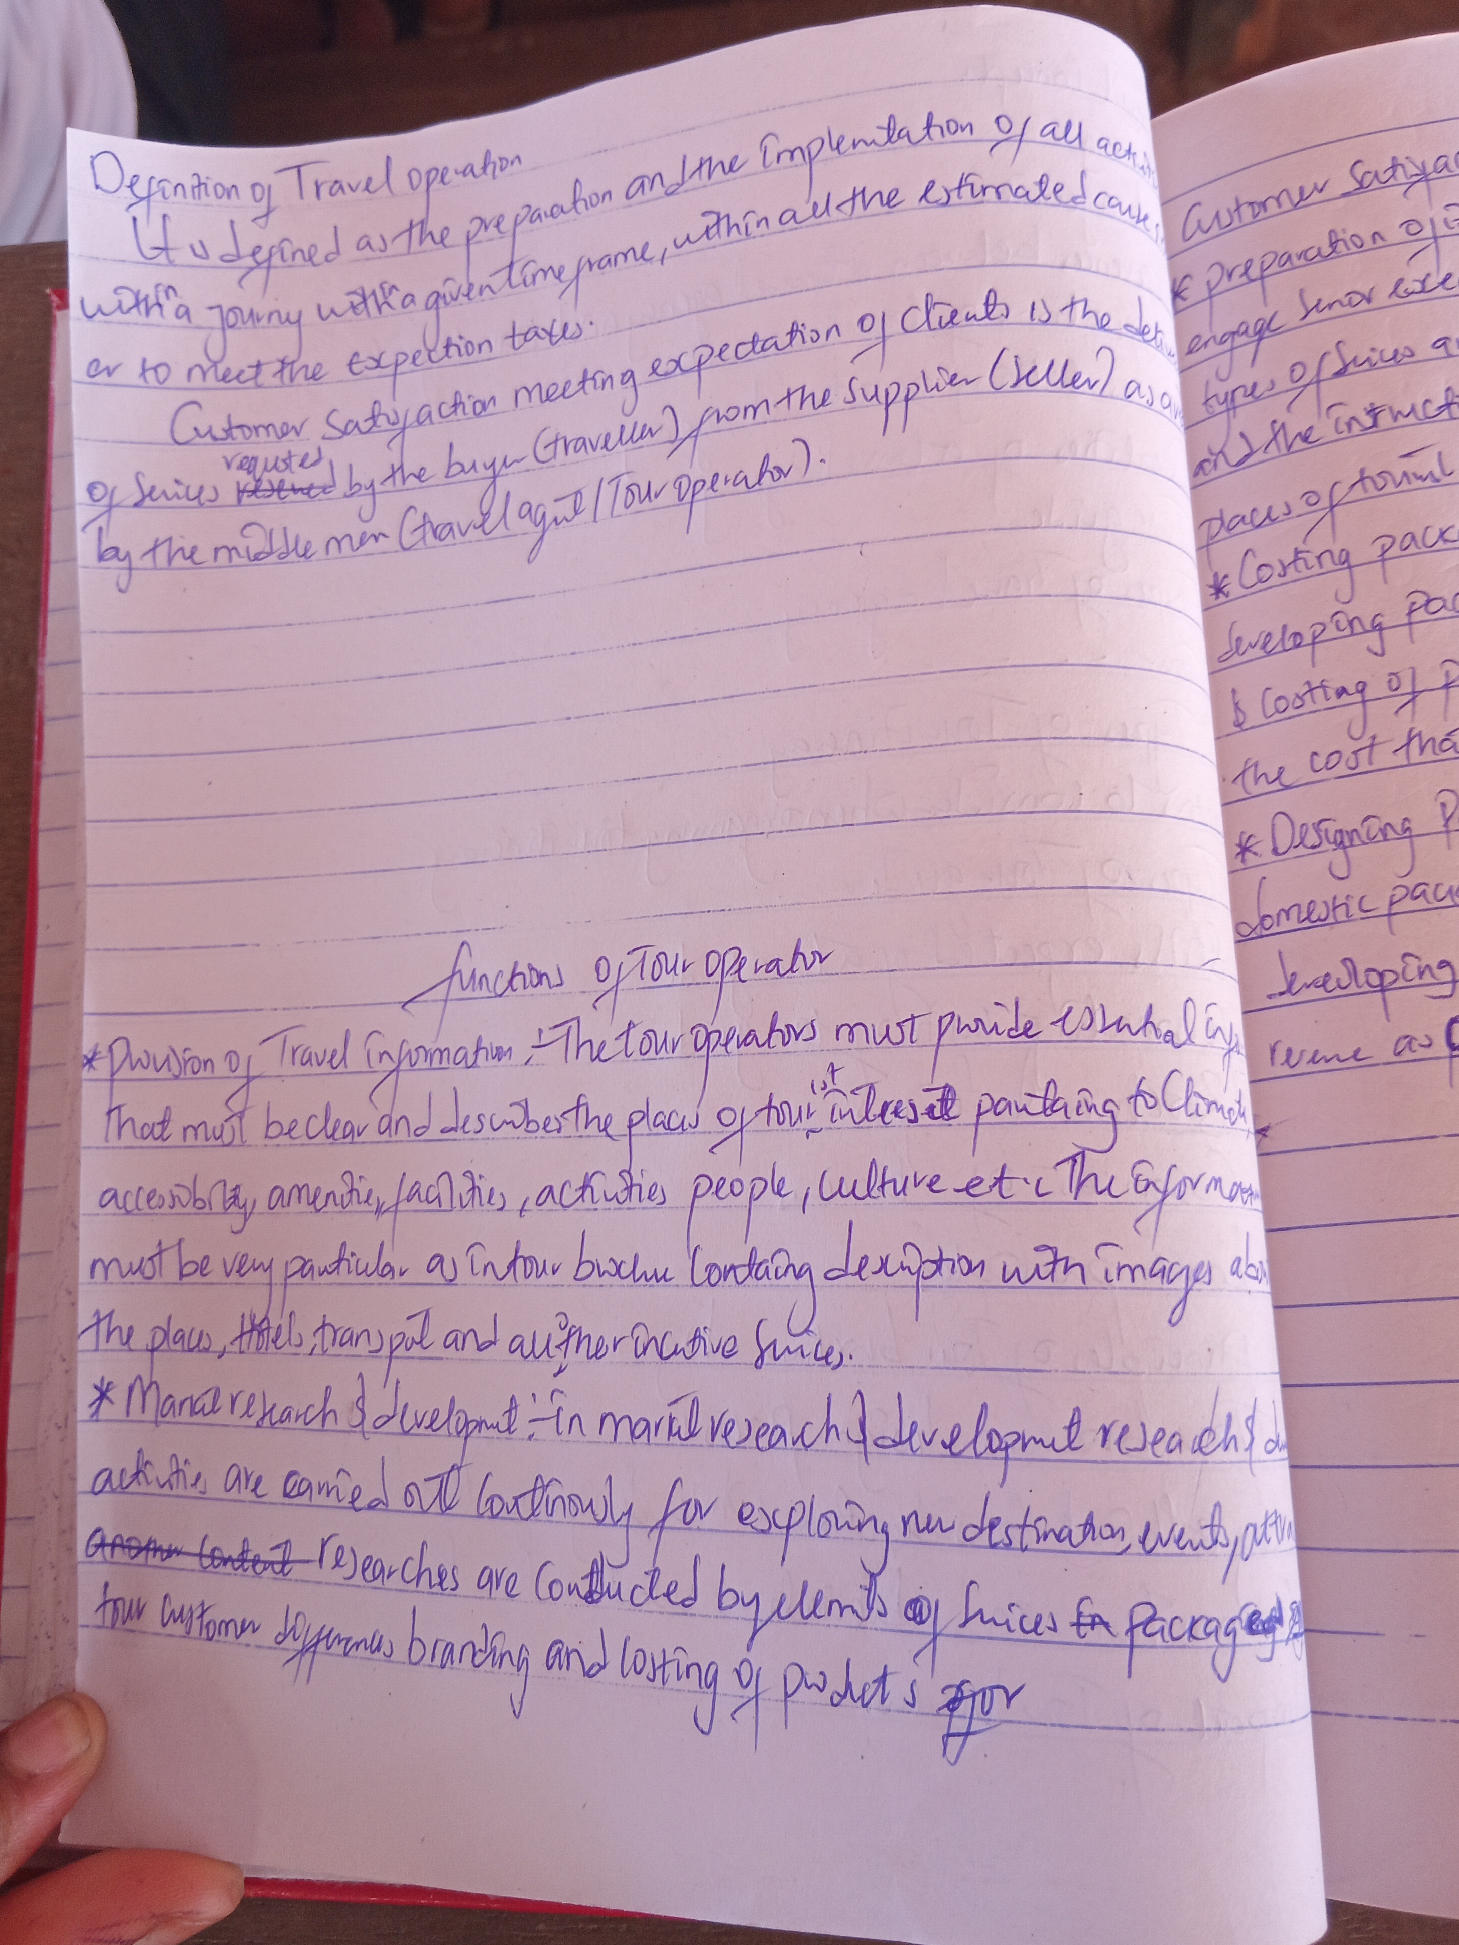 Definition of Travel operation
It is defined as the preparation and the implemtation of all
within a journy within a given timeframe, within all the estimated
er to meet the expection taxes.
Customer Satisfaction meeting expectation of Clients is the
of Services requsted by the buyer (traveller) from the supplier (seller) as
by the middle men (travel agent / Tour operator).
functions of Tour operator
* Provision of Travel information :- The tour operators must provide essential
That must be clear and describes the places of tourist interest to
accessibility, amenities, facilities, activities people, culture et.c The
must be very particular as in tour description with images
the places, Hotels, transport and all other Services.
* research & development :- In market research & development research &
activities are carried out for exploring new destination, events,
researches are conducted by of Services packag
tour customer branding and costing of products for
Customer
* preparation of
engage senior
types of Services
and the
places of
* Costing
developing
& Costing of
the cost
* Designing
domestic
developing
as